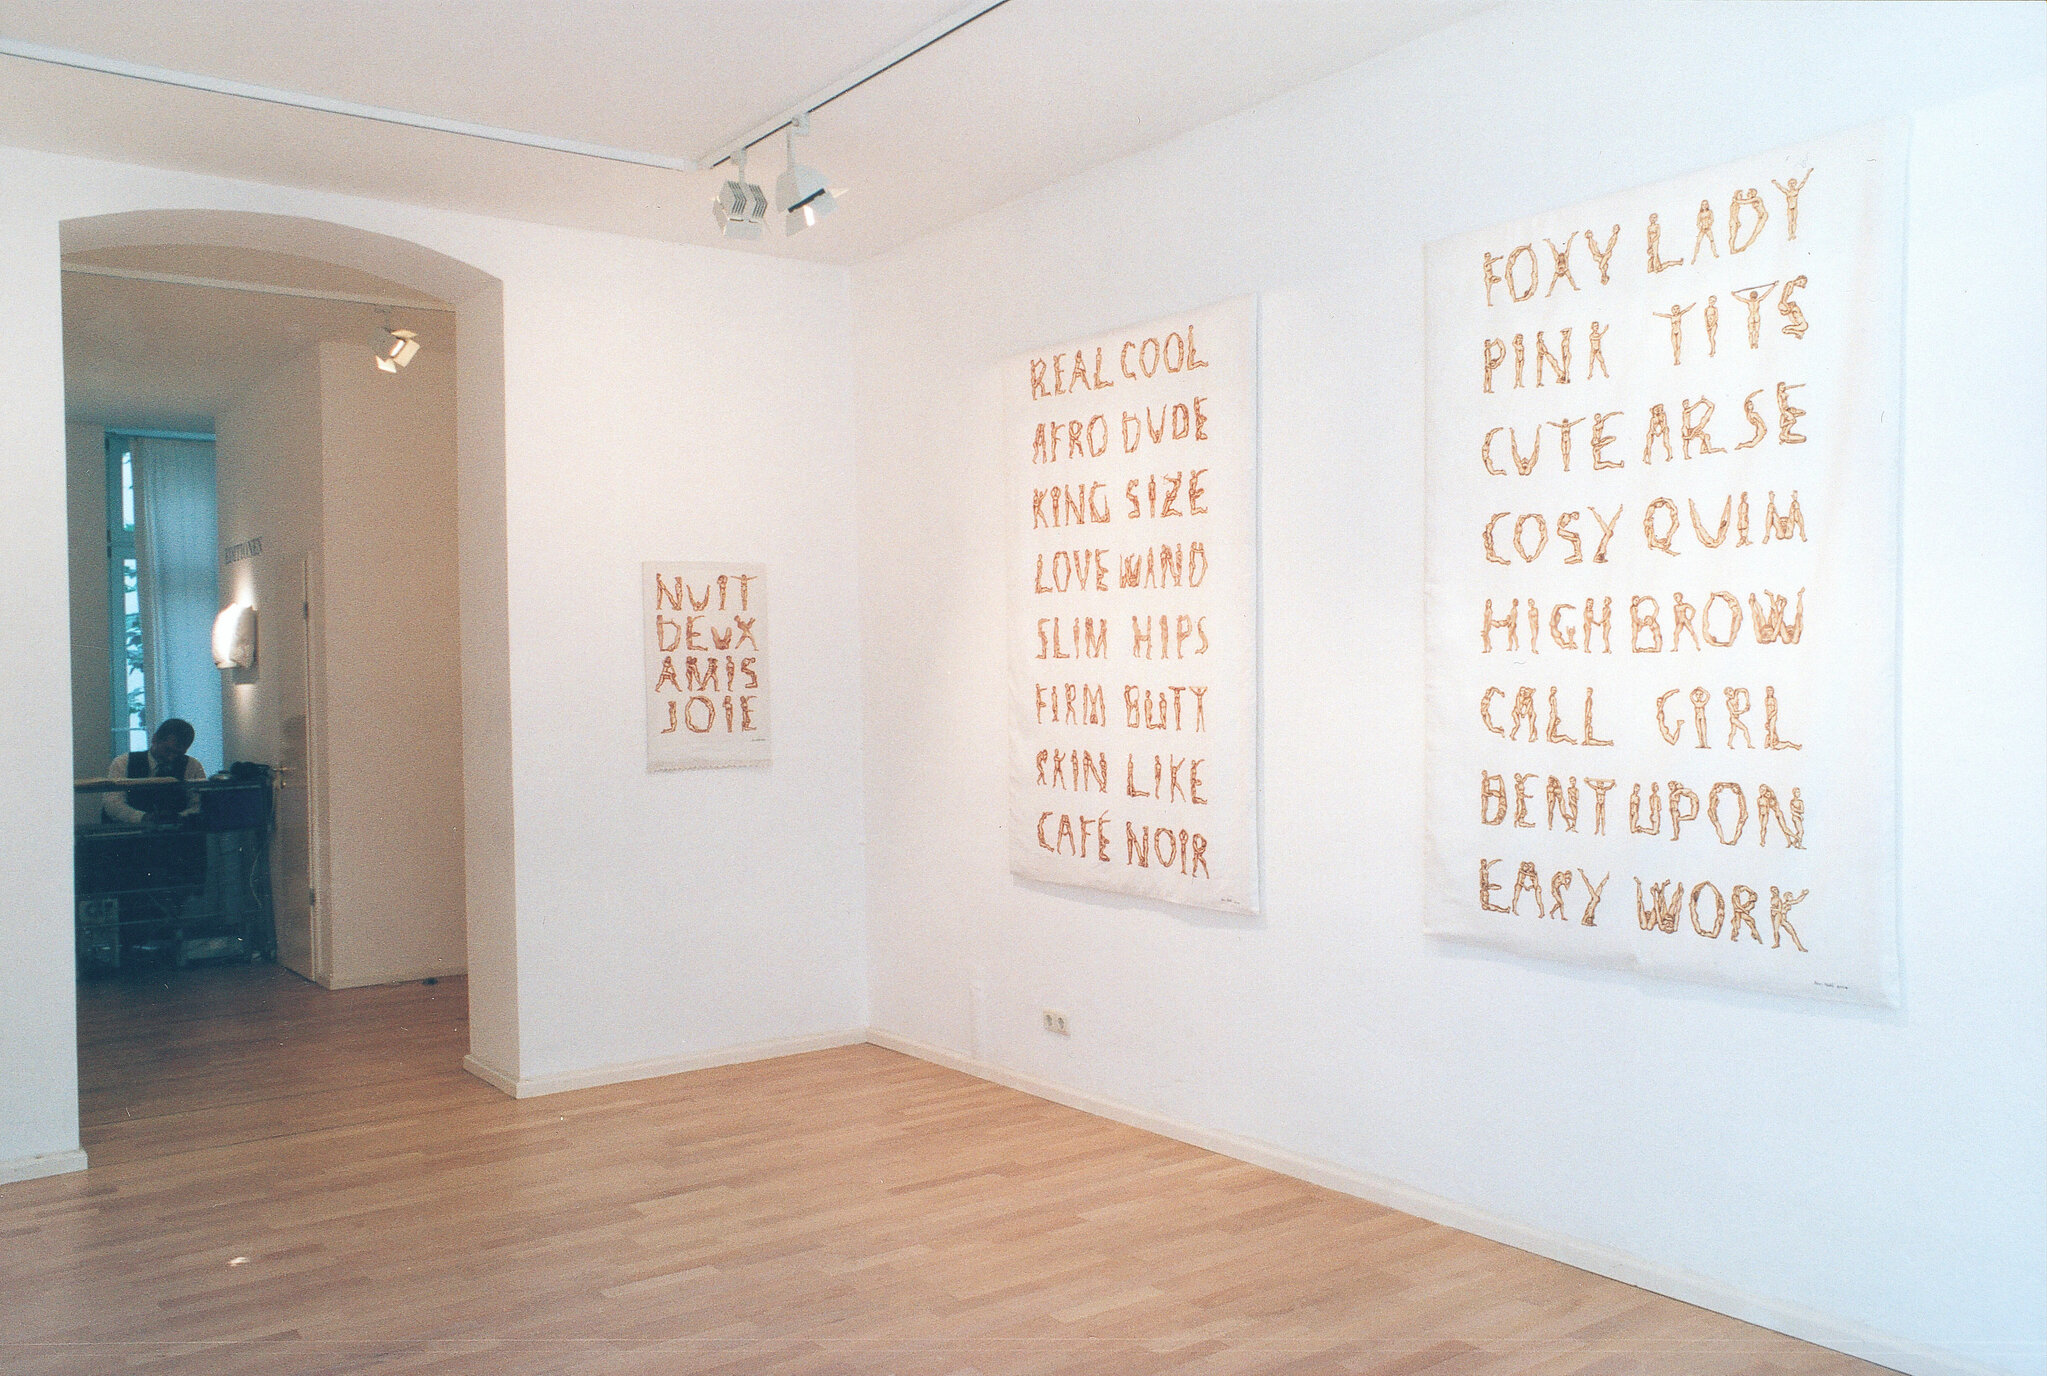 EDITIONEN
NUIT
DEUX
AMIS
JOIE
REAL COOL
AFRO DUDE
KING SIZE
LOVE WAND
SLIM HIPS
FIRM BUTT
SKIN LIKE
CAFÉ NOIR
FOXY LADY
PINK TITS
CUTE ARSE
COSY QUIM
HIGH BROW
CALL GIRL
BENT UPON
EASY WORK